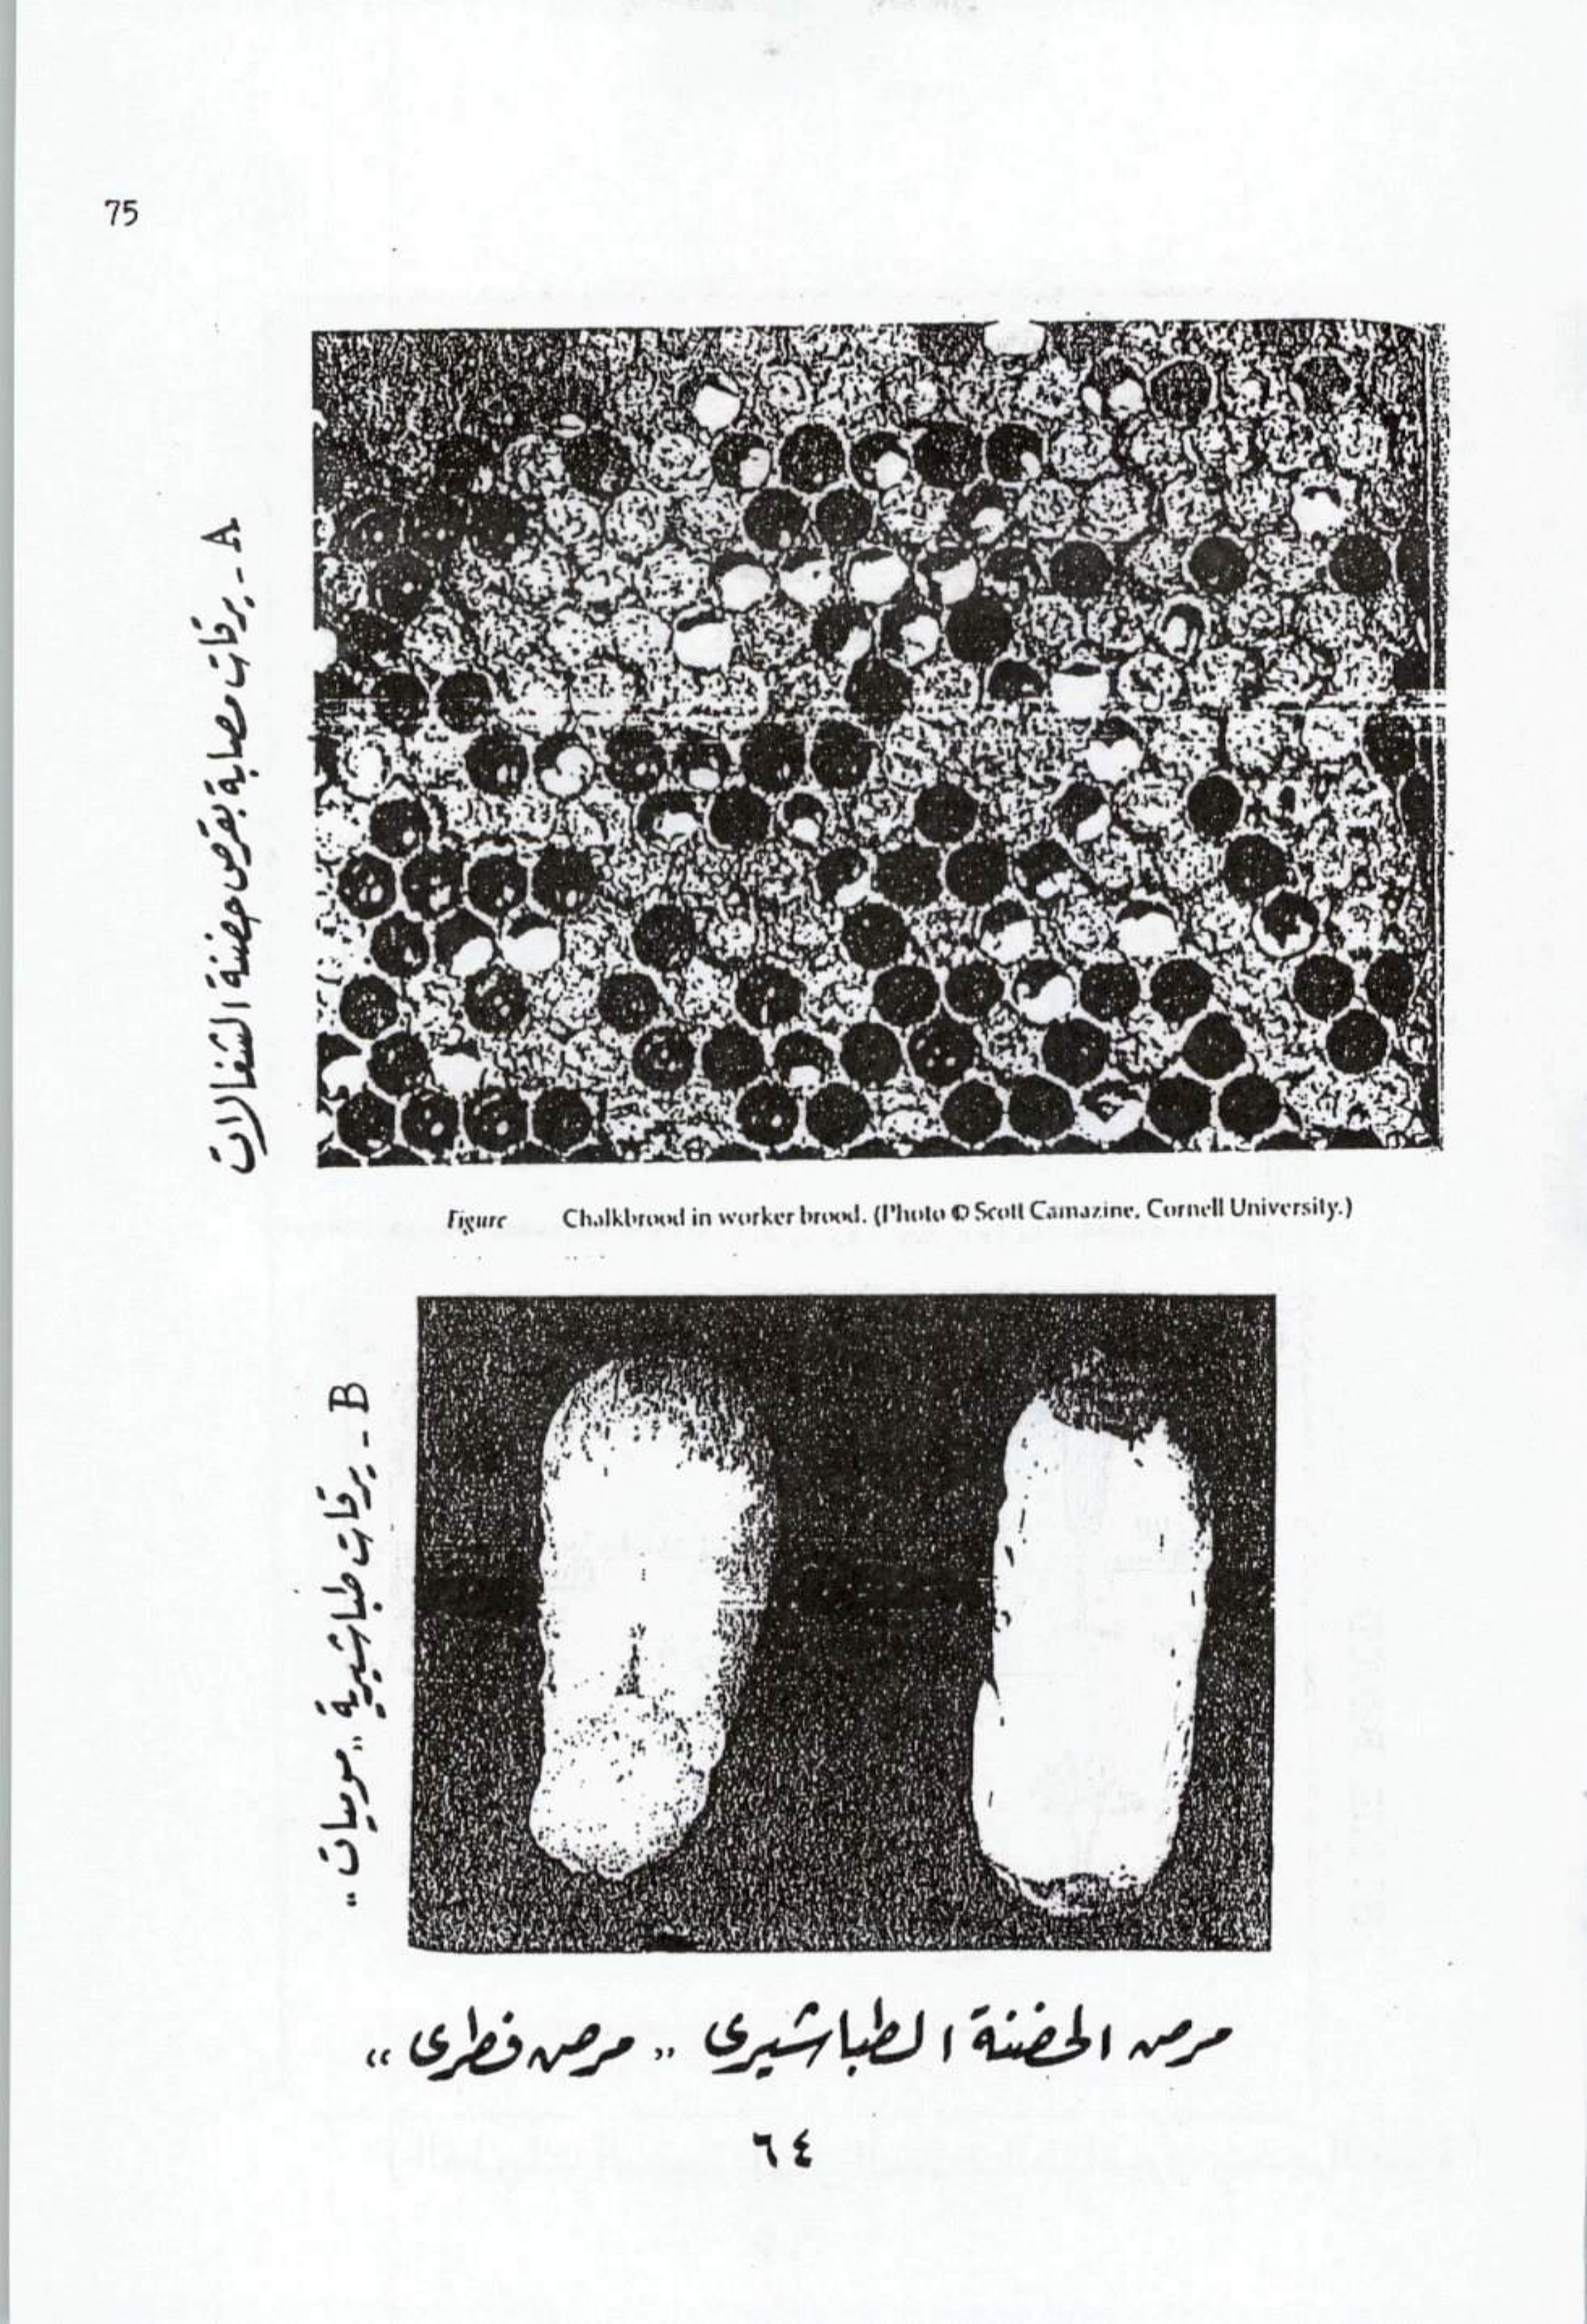 75
A - يرقات مصابة بقرص حضنة الشغالات
Figure Chalkbrood in worker brood. (Photo © Scott Camazine, Cornell University.)
B - يرقات طباشيرية "موميات"
مرض الحضنة الطباشيرى "مرض فطرى"
٦٤